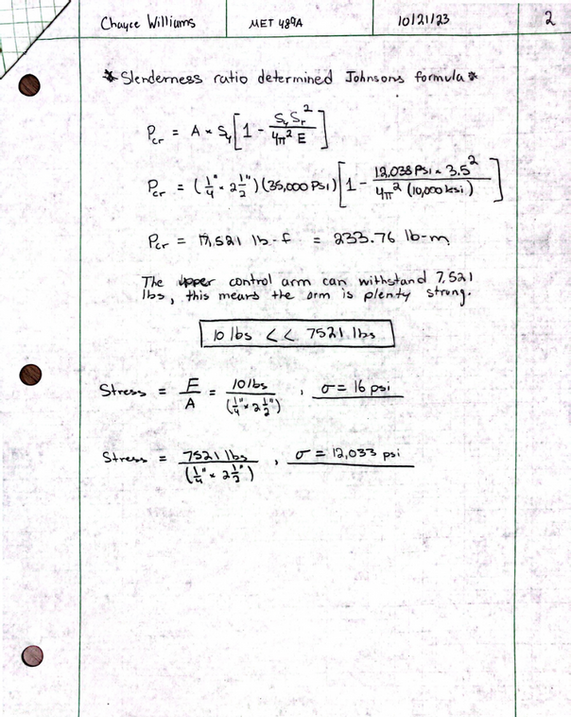 Chayce Williams MET 489A 10/21/23 2
*Slenderness ratio determined Johnsons formula*
Pcr = A * Sy [1 - Sy Sr² / 4π² E]
Pcr = (1/4" * 2 1/2")(35,000 PSI) [1 - 12,038 PSI * 3.5² / 4π² (10,000 ksi)]
Pcr = 17,521 lb-f = 233.76 lb-m
The upper control arm can withstand 7,521
lbs, this means the arm is plenty strong.
10 lbs << 7521 lbs
Stress = F/A = 10 lbs / (1/4" * 2 1/2") , σ = 16 psi
Stress = 7521 lbs / (1/4" * 2 1/2") , σ = 12,033 psi